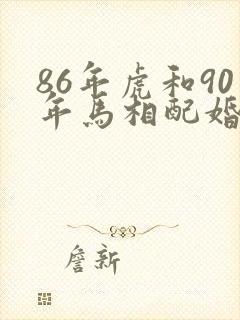 86年虎和90
年马相配婚
詹新